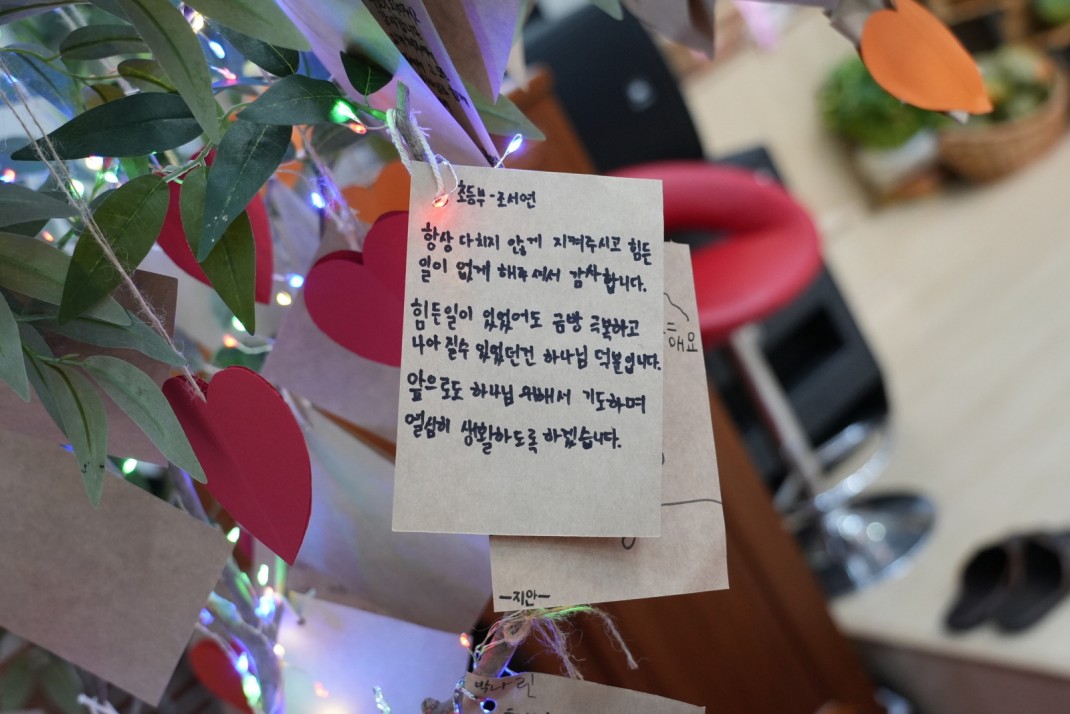 초등부 - 조서연
항상 다치지 않게 지켜주시고 힘든
일이 없게 해주셔서 감사합니다.
힘든일이 있었어도 금방 극복하고
나아질수 있었던건 하나님 덕분입니다.
앞으로도 하나님 위해서 기도하며
열심히 생활하도록 하겠습니다.
해요
-지안-